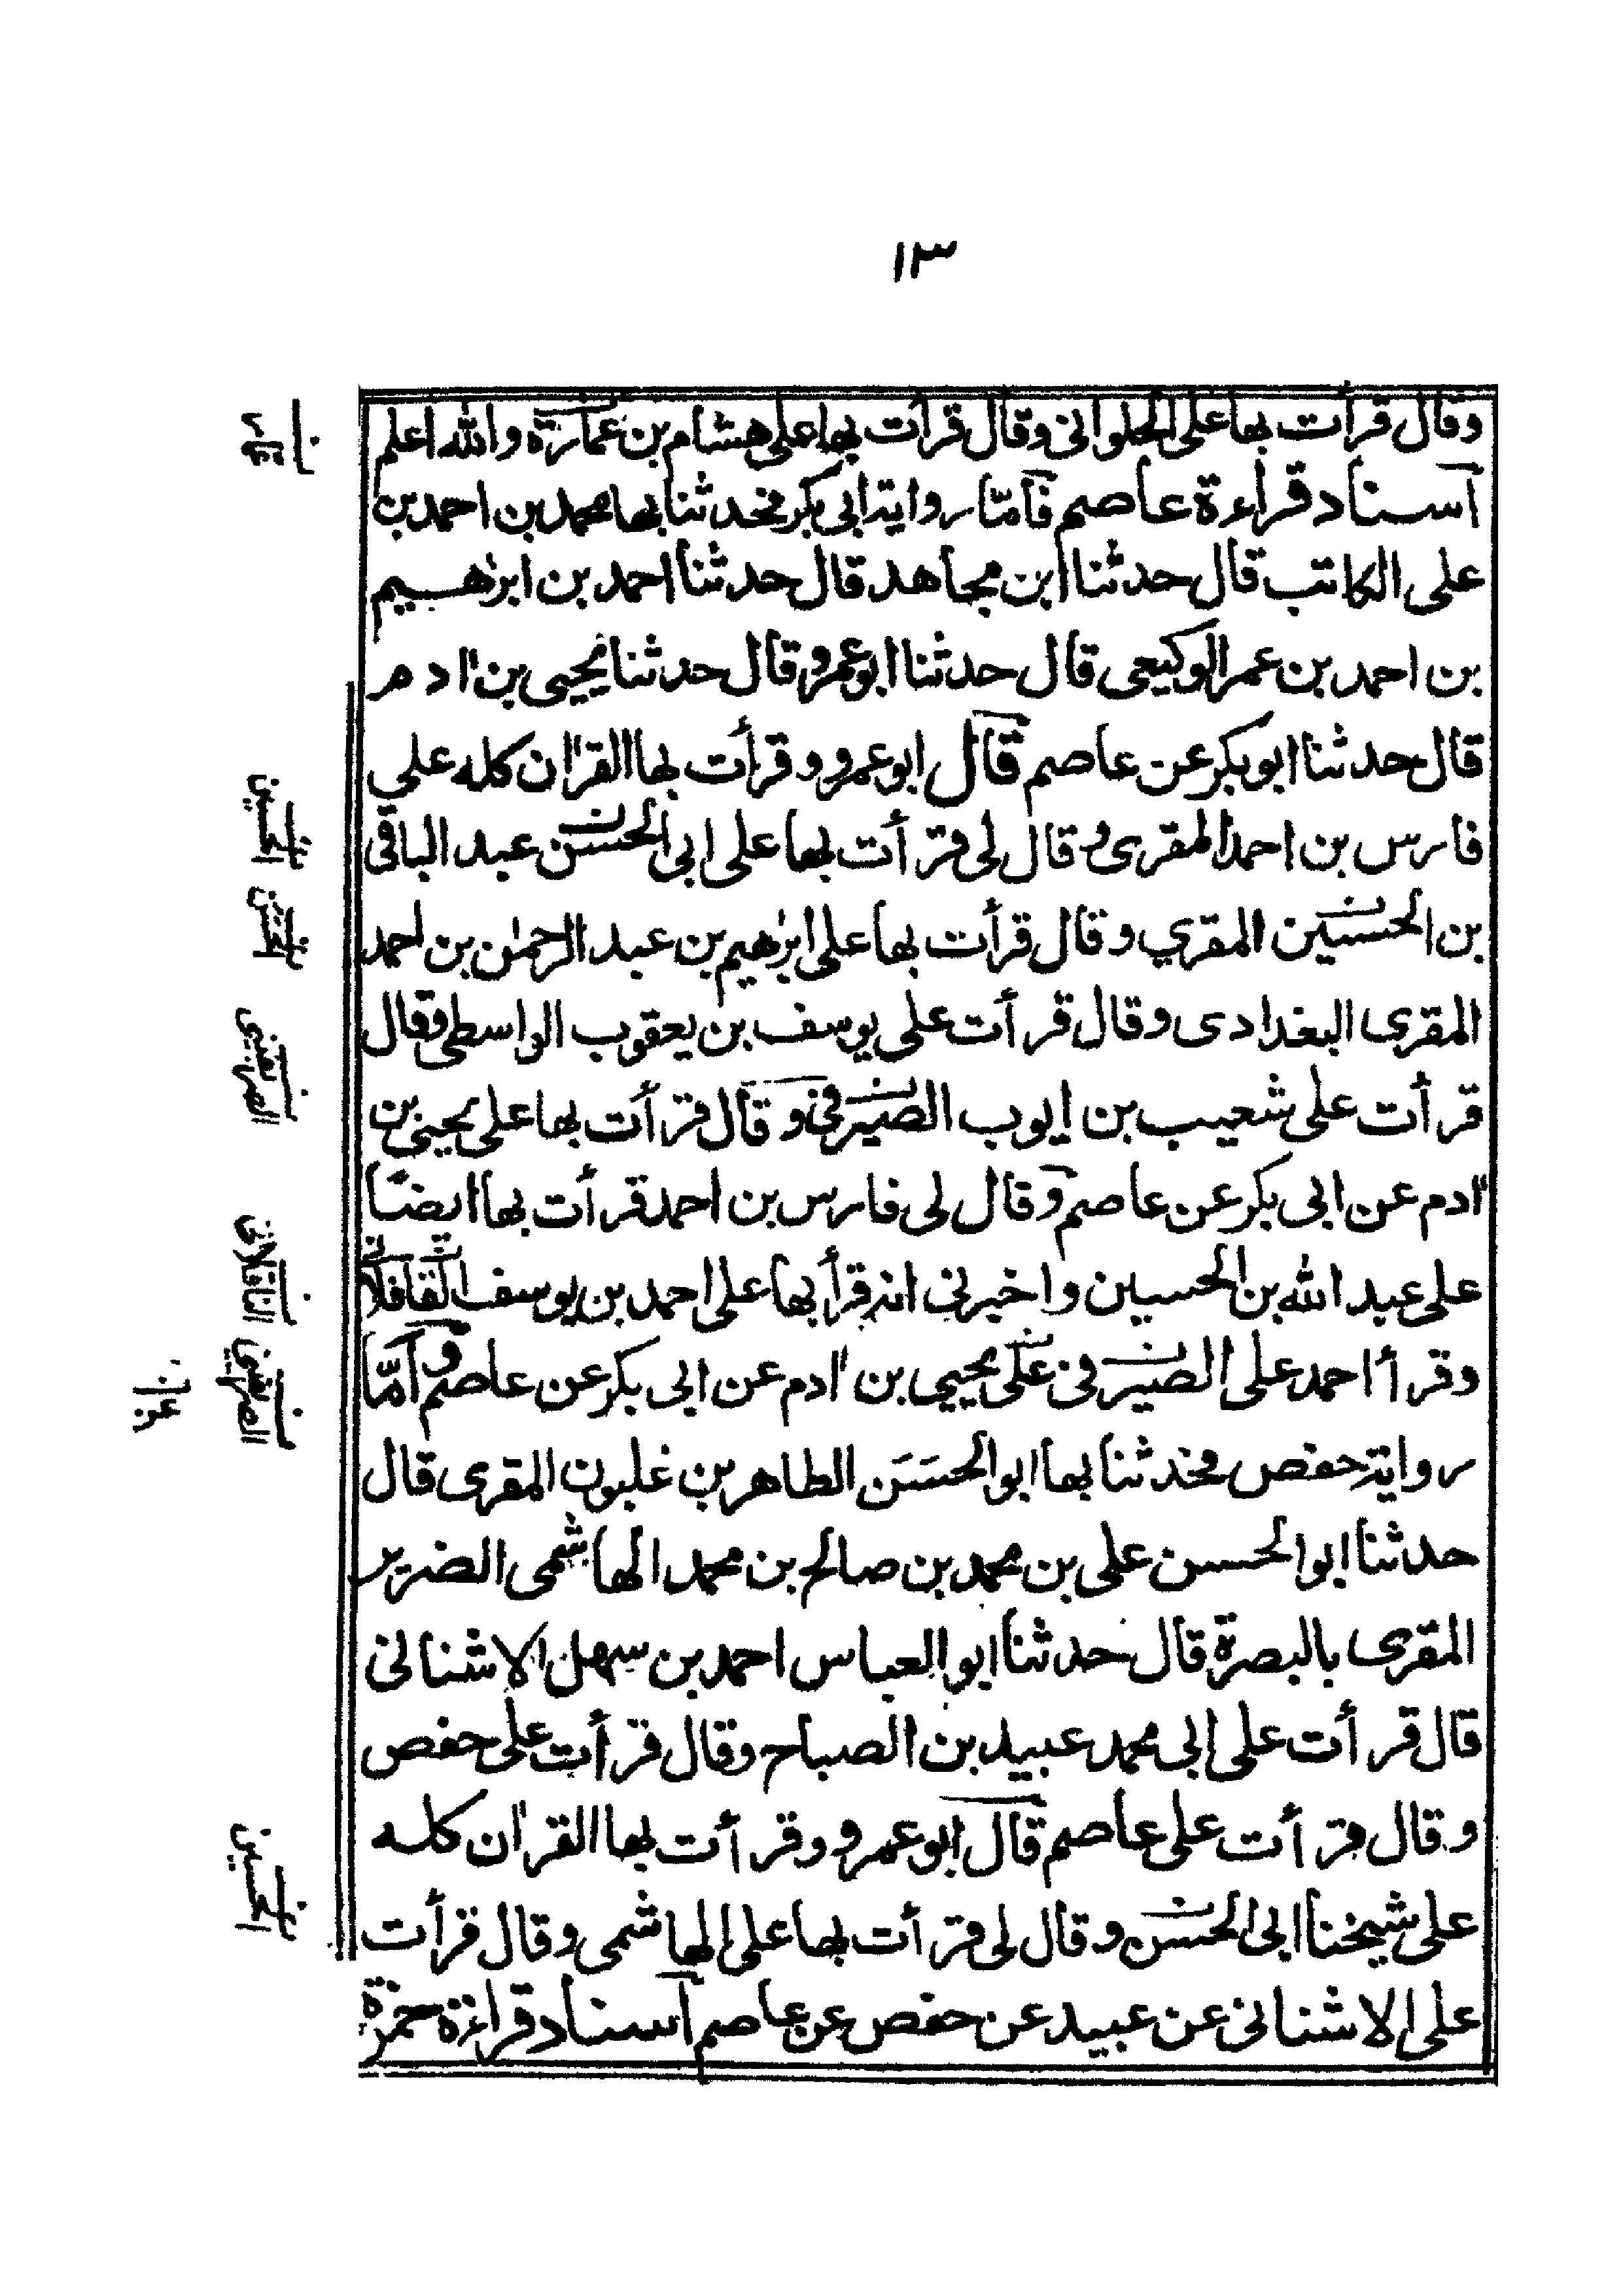 ١٣
وقال قرأت بها على الحلوانى وقال قرأت بها على هشام بن عمارة والله اعلم
اسناد قراءة عاصم فأمّا رواية ابى بكر فحدثنا بها محمد بن احمد بن
على الكاتب قال حدثنا ابن مجاهد قال حدثنا احمد بن ابرٰهيم
بن احمد بن عمر الوكيعى قال حدثنا ابو عمرو قال حدثنا يحيى بن اٰدم
قال حدثنا ابو بكر عن عاصم قال ابو عمرو وقرأت بها القرٰان كله على
فارس بن احمد المقرى وقال لى قرأت بها على ابى الحسن عبد الباقى
بن الحسين المقري وقال قرأت بها على ابرٰهيم بن عبد الرحمٰن بن احمد
المقرى البغدادى وقال قرأت على يوسف بن يعقوب الواسطى وقال
قرأت على شعيب بن ايوب الصيرفى وقال قرأت بها على يحيى بن
اٰدم عن ابى بكر عن عاصم وقال لى فارس بن احمد قرأت بها ايضًا
على عبد الله بن الحسين واخبرنى انه قرأ بها على احمد بن يوسف القافلانى
وقرأ احمد على الصيرفى على يحيى بن اٰدم عن ابى بكر عن عاصم وأمّا
رواية حفص فحدثنا بها ابو الحسَن الطاهر بن غلبون المقرى قال
حدثنا ابو الحسن على بن محمد بن صالح بن محمد الهاشمى الضرير
المقرى بالبصرة قال حدثنا ابو العباس احمد بن سهل الاشنانى
قال قرأت على ابى محمد عبيد بن الصباح وقال قرأت على حفص
وقال قرأت على عاصم قال ابو عمرو وقرأت بها القرٰان كله
على شيخنا ابى الحسن وقال لى قرأت بها على الهاشمى وقال قرأت
على الاشنانى عن عبيد عن حفص عن عاصم اسناد قراءة حمزة
الحسين
الحسن
الحسين